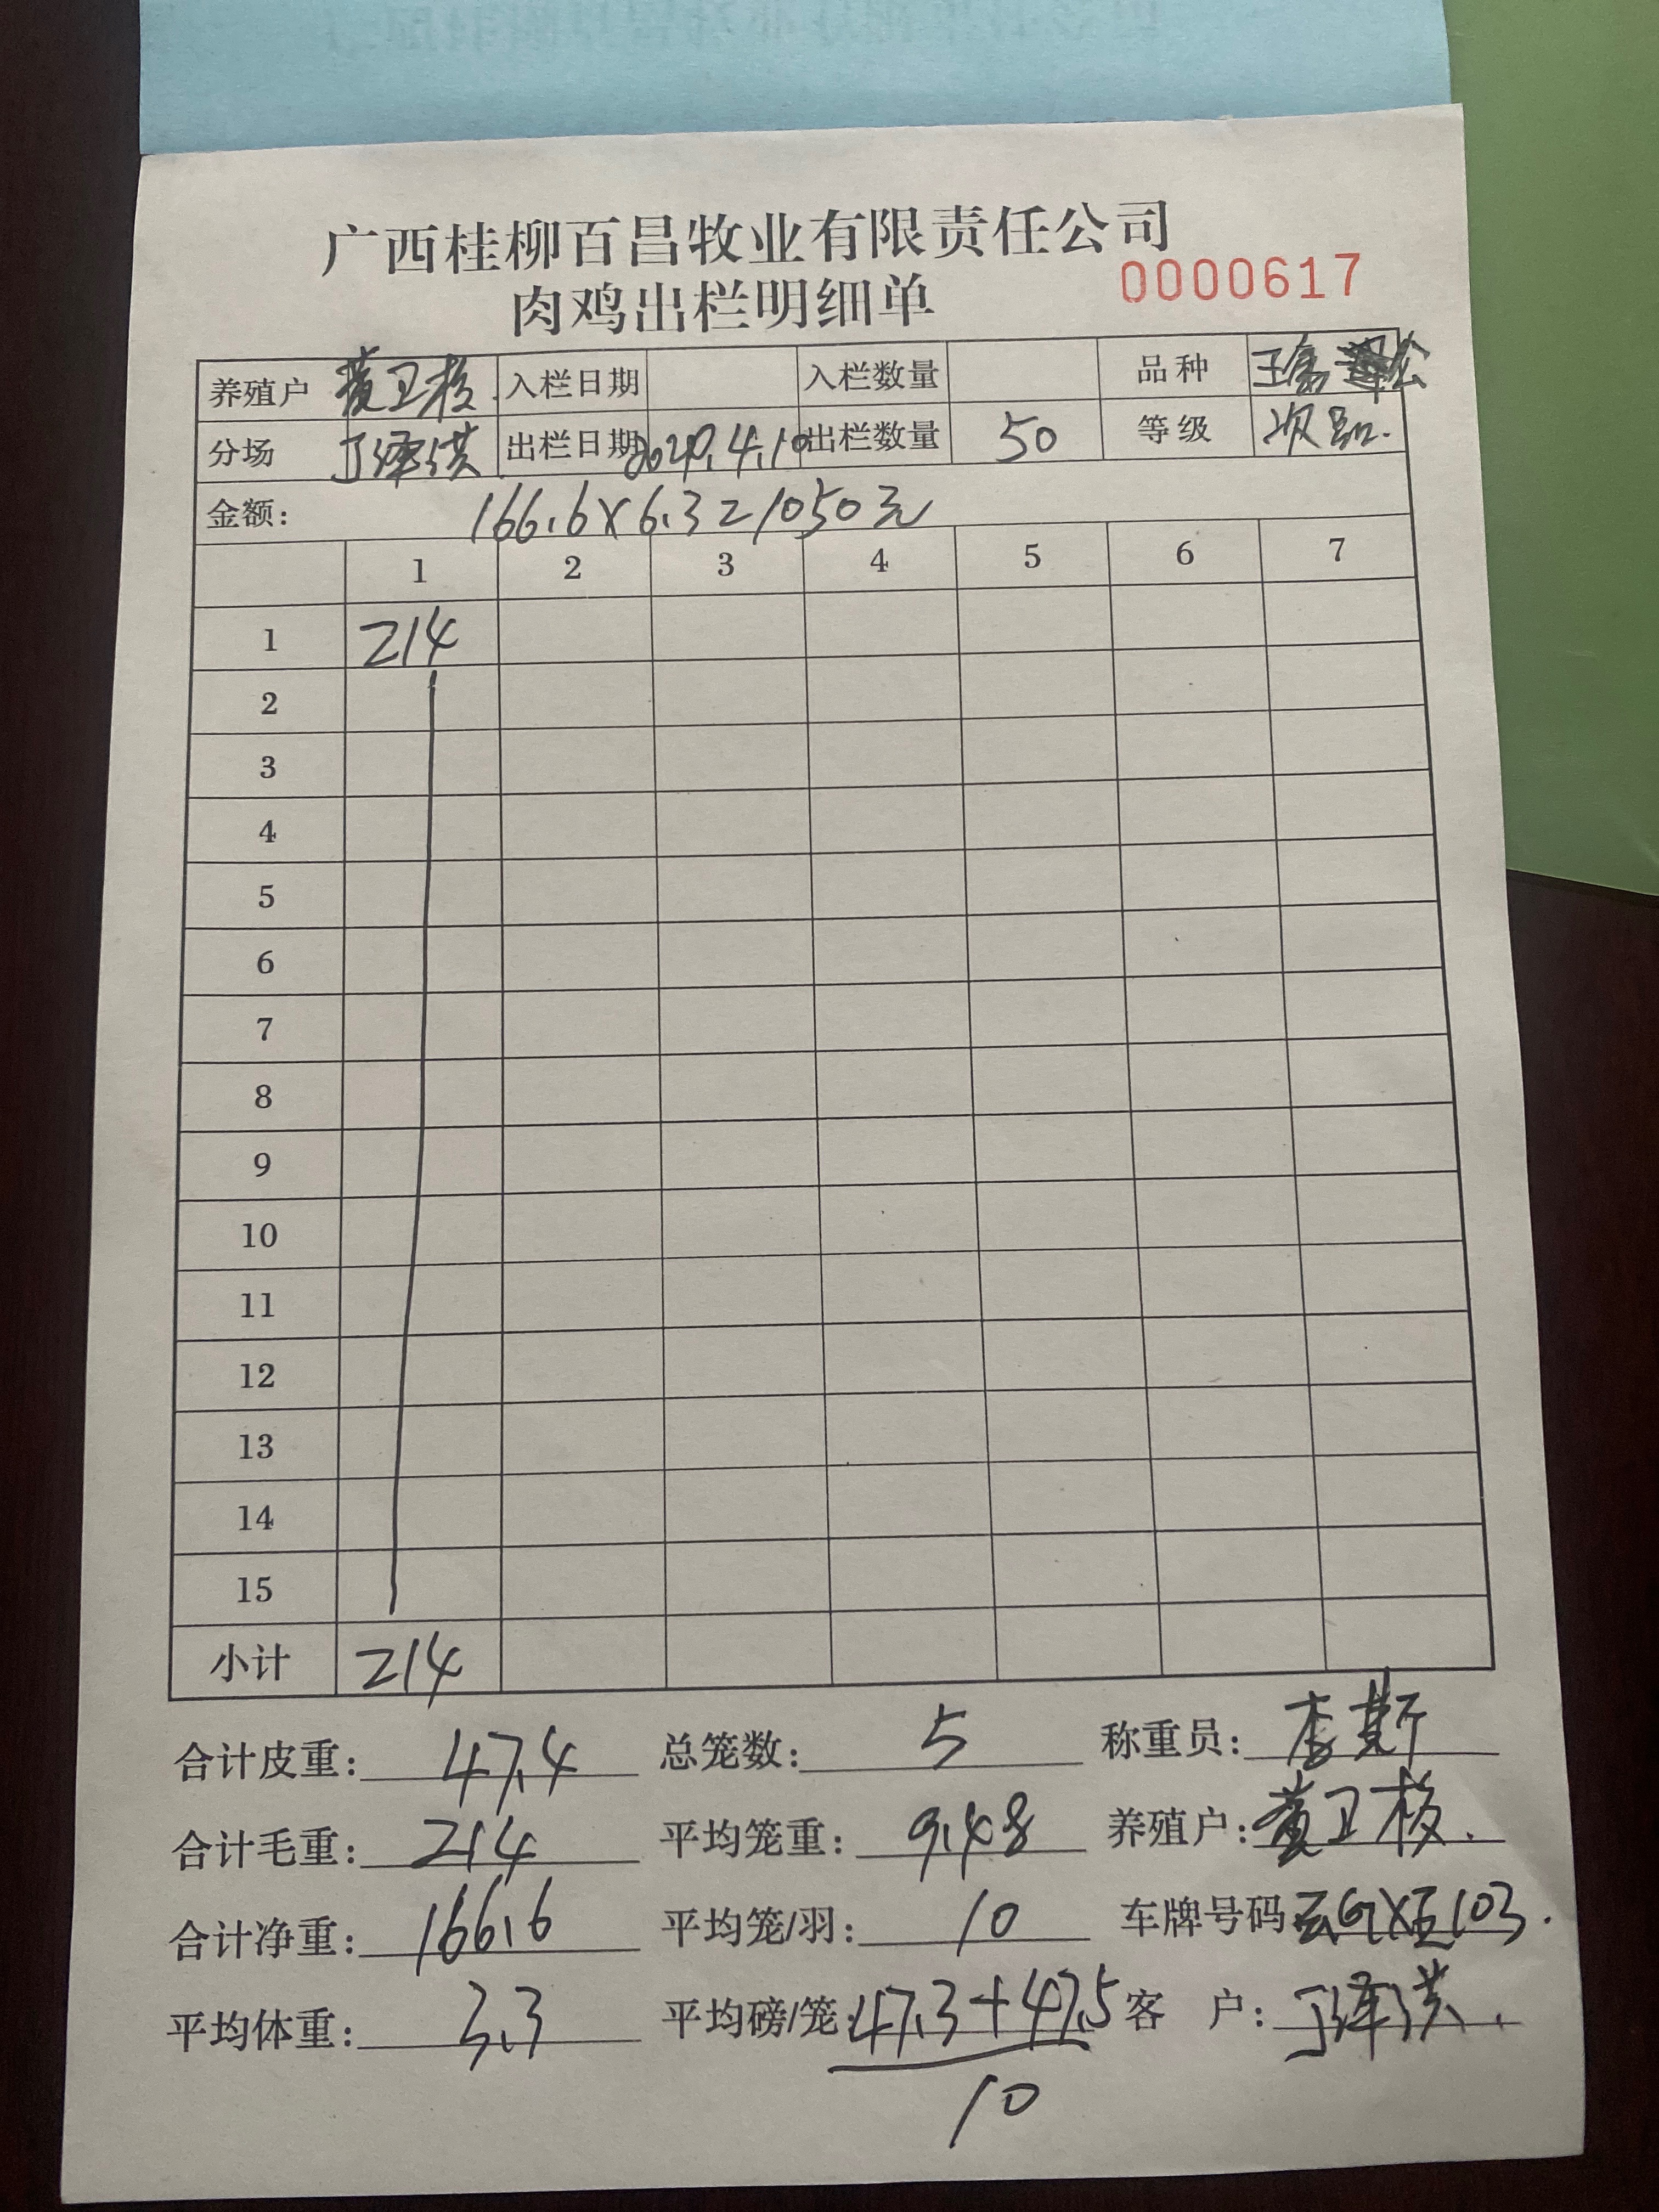 广西桂柳百昌牧业有限责任公司
肉鸡出栏明细单
0000617
养殖户 黄卫核 入栏日期 入栏数量 品种
分场 丁泽洪 出栏日期 出栏数量 50 等级 次品.
金额: 166.6×6.3=1050元
1 2 3 4 5 6 7
1 214
2
3
4
5
6
7
8
9
10
11
12
13
14
15
小计 214
合计皮重: 47.4 总笼数: 5 称重员:
合计毛重: 214 平均笼重: 9.48 养殖户: 黄卫核.
合计净重: 166.6 平均笼/羽: 10 车牌号码
平均体重: 3.3 平均磅/笼: 47.3+47.5 客 户: 丁泽洪.
10